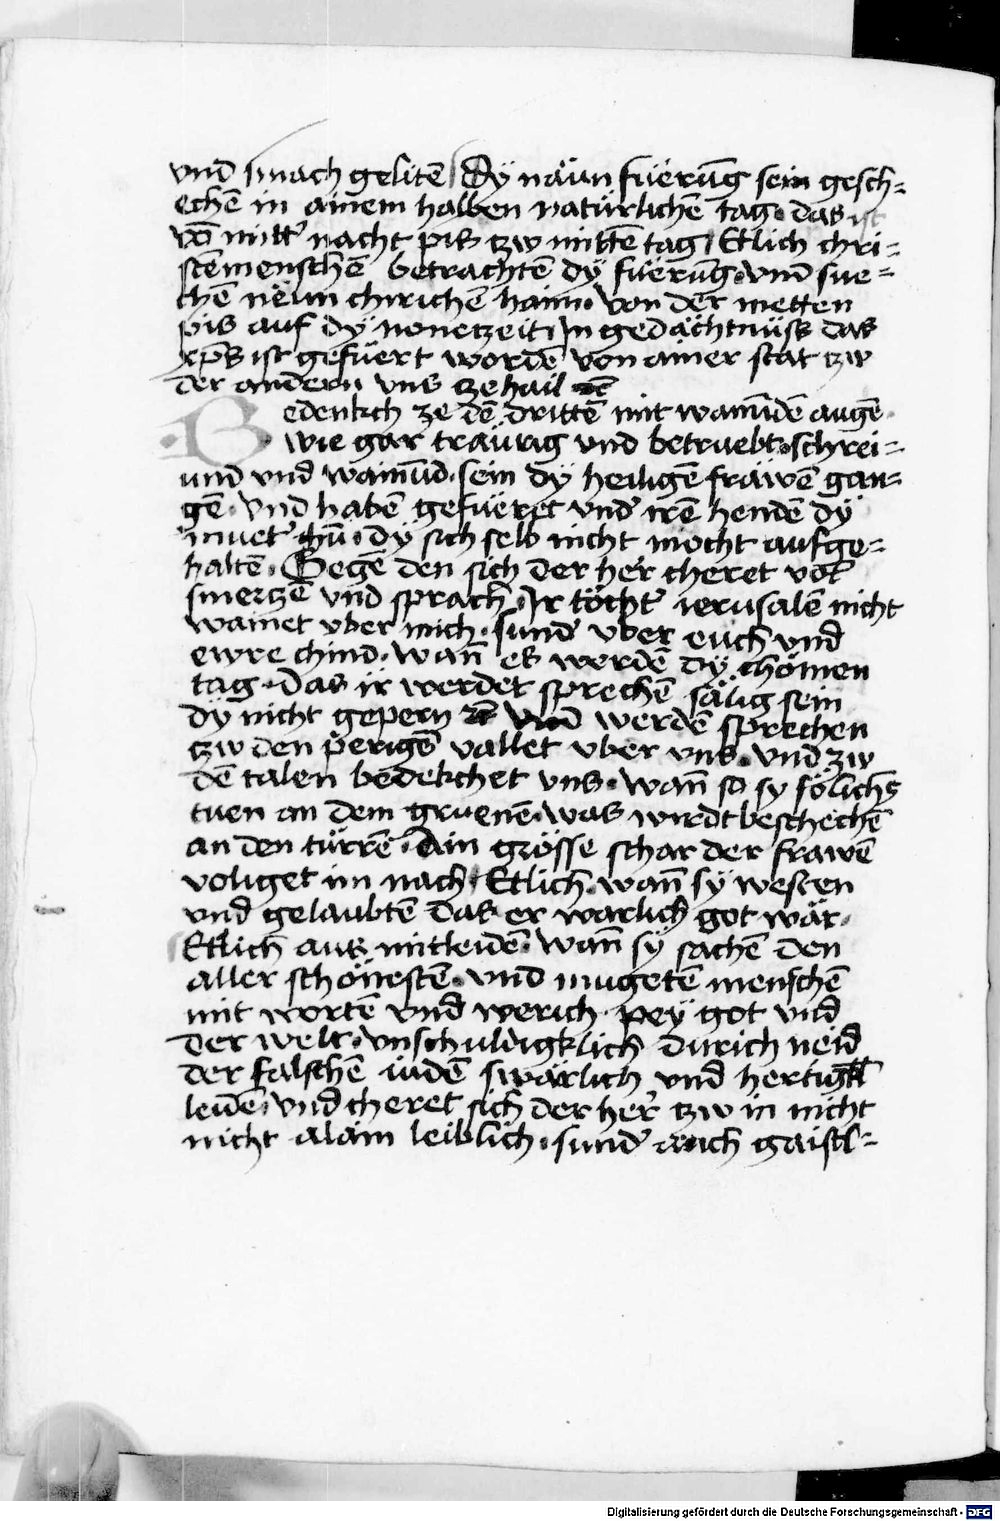 vnd smach gelitē Dÿ näün füerūg sein gesch=
echē in ainem halben natürlichē tag · das ist
vō mitt' nacht piß tzw mittē tag Etlich chri=
stēmenschē betrachtē dÿ füerūg · vnd sue=
chē neün chirichē haim · von der metten
pis auf dÿ nonetzeit · In gedächtnüß das
xp̄s ist gefüert wordē von ainer stat tzw
der andern vns tzehail ꝛc
Gedenkch ze dē drittē mit wainūdē augē ·
wie gar träurig vnd betruebt · schrei=
und vnd wainūd · sein dÿ heiligē fräwē gan=
gē · vnd habē gefüeret vnd' irē hendē dÿ
muet' · dÿ sich selb nicht mocht aufge=
haltē · Gegē den sich der her cheret vol
smertzē vnd sprach · Ir töcht' ierusalē nicht
wainet vber mich · sund' vber euch vnd
ewre chind · wañ es werdē dÿ chömen
tag · Das ir werdet sprechē sälig sein
dÿ nicht gepern ꝛc vnd werdē sprechen
tzw den perigē vallet vber vns · vnd zw
dē talen bedekchet vns · wañ so sy sölichs
tuen an dem gruenē · was wirdt beschechē
an den türrē · Ain grösse schar der frawē
voliget im nach Etlich · wañ sÿ westen
vnd gelaubtē das er warlich got wär ·
Etlich auß mitleidē · wañ sÿ sachē den
aller schönestē · vnd mugetē menschē
mit wortē vnd werich · pey got vnd
der welt · vnschuldigklich durich neid
der falschē iudē swärlich vnd hertigkl
leidē · vnd cheret sich der her tzw in nicht
nicht alain leiblich · sund' auch gaistl=
Digitalisierung gefördert durch die Deutsche Forschungsgemeinschaft - DFG